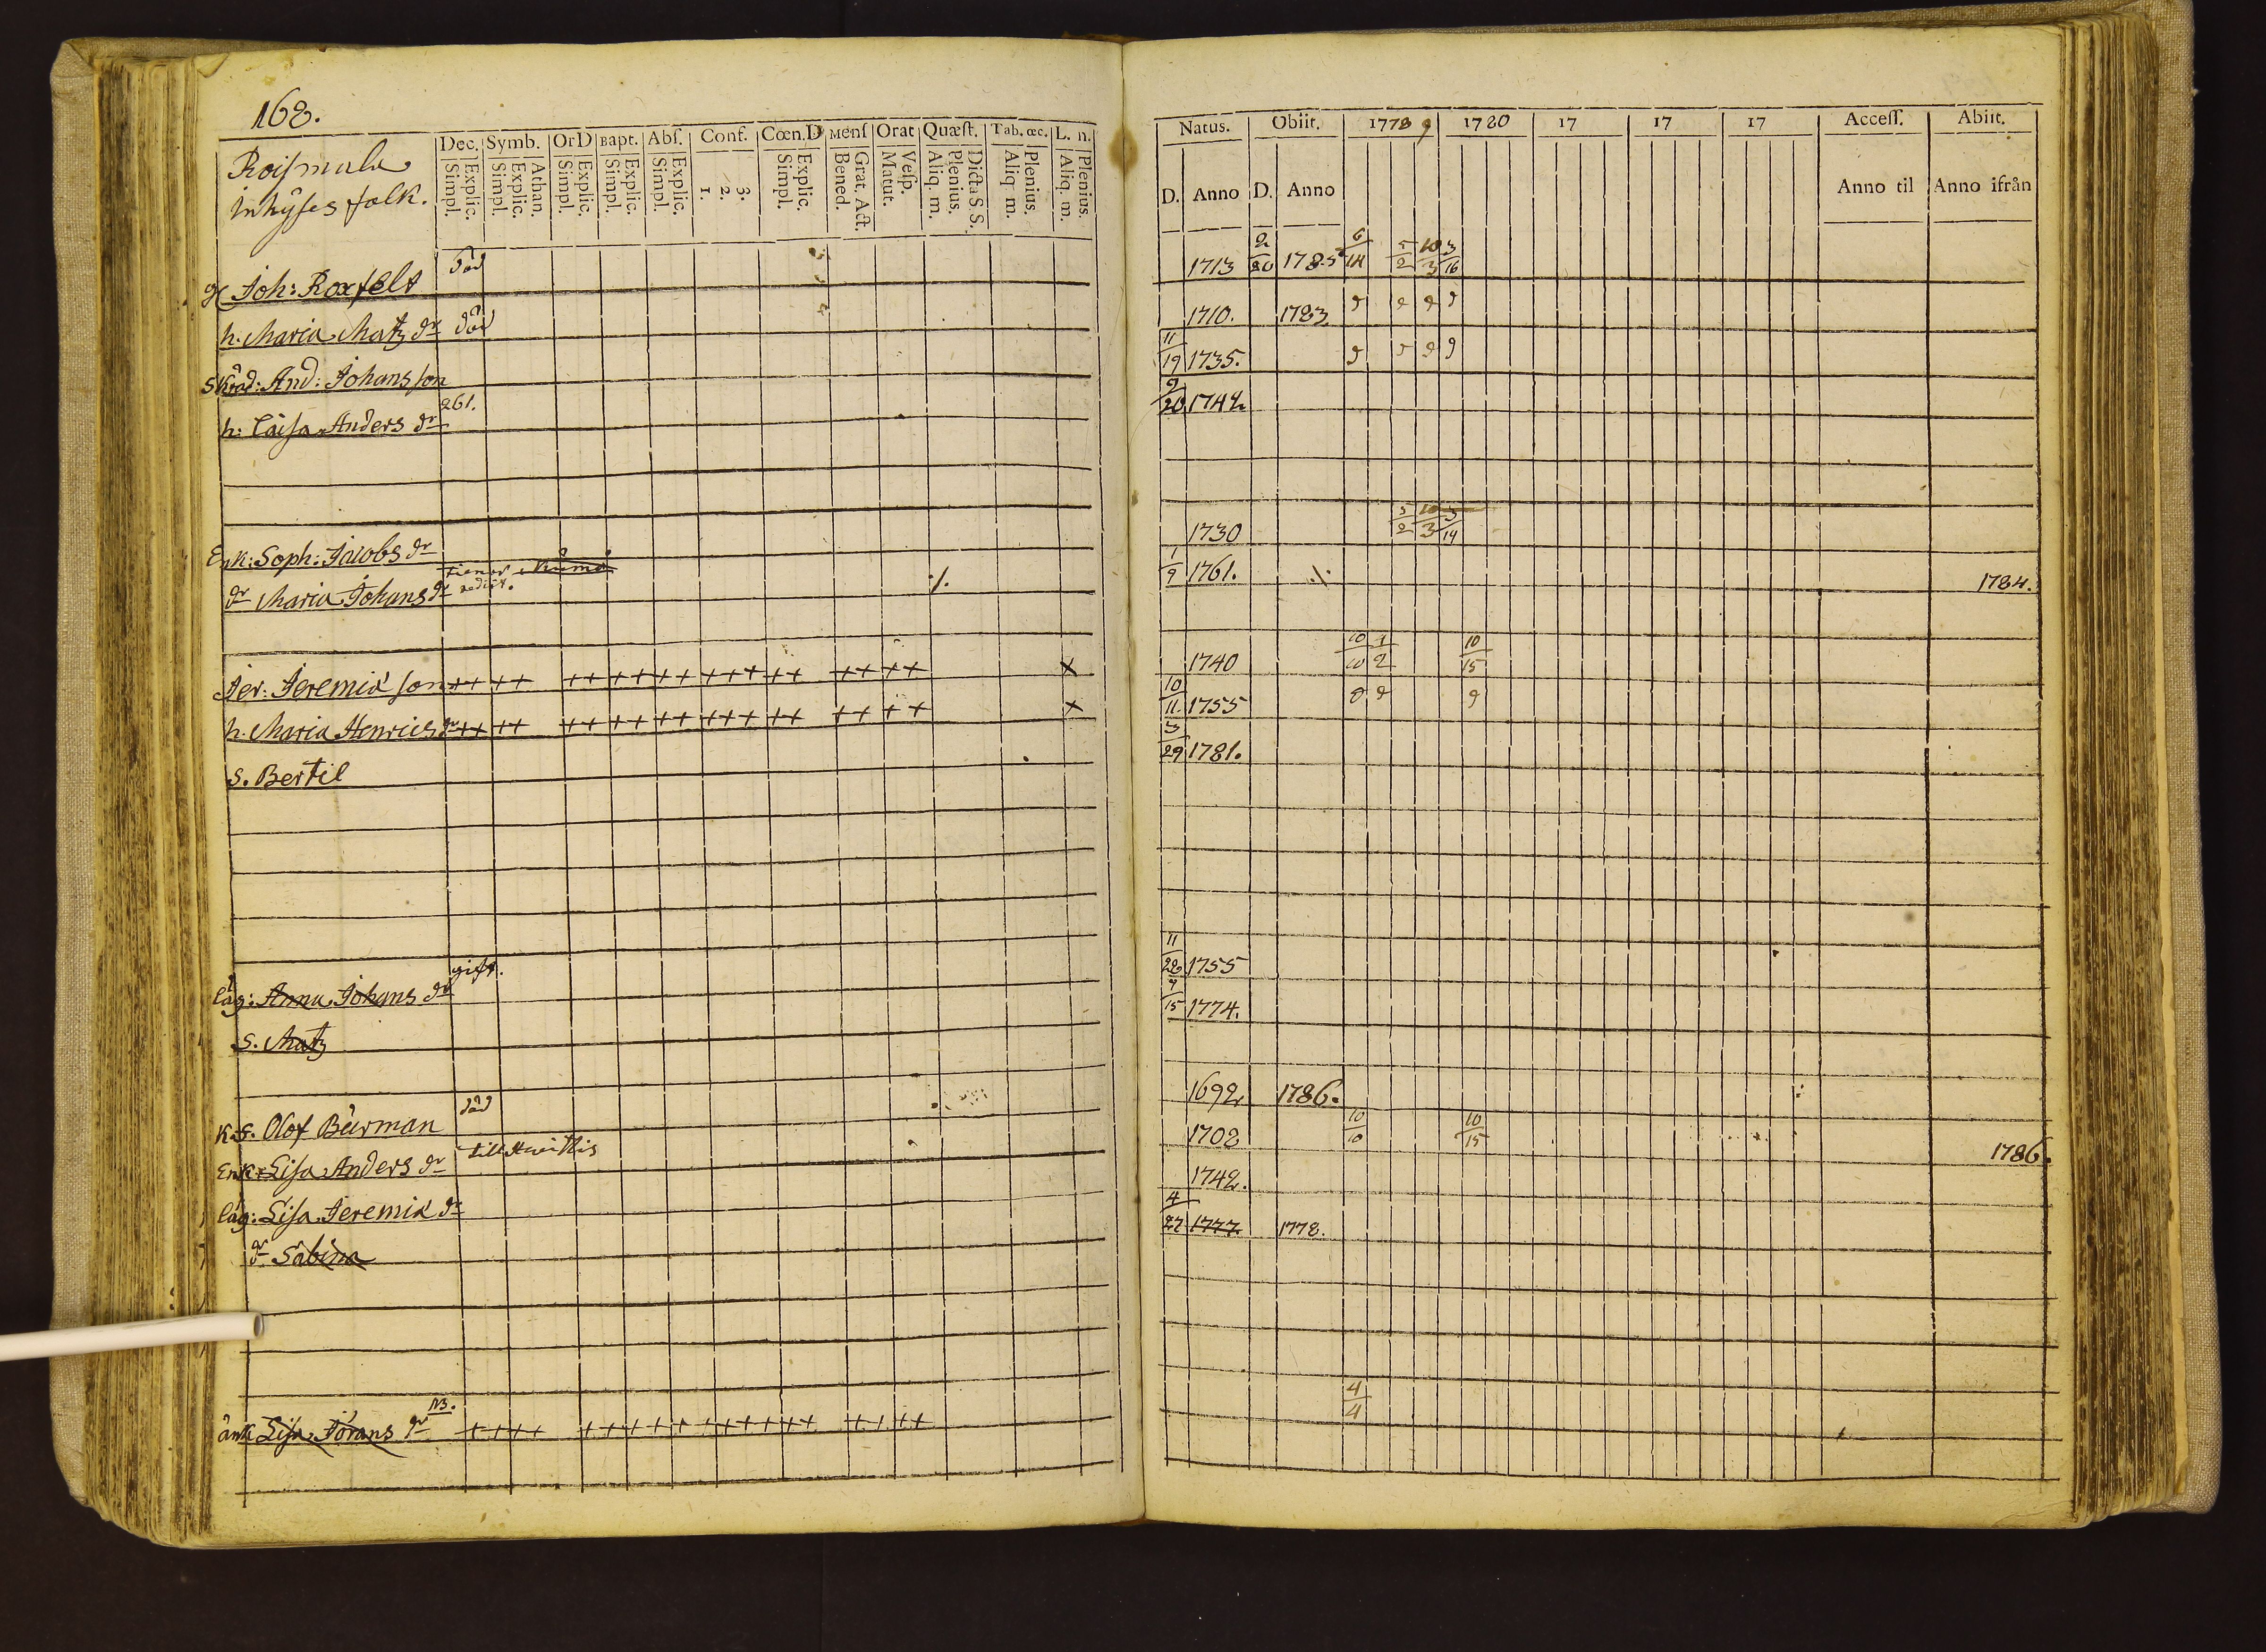 168.
Roismala
Inhyses folk.
Dec. Symb. OrD Bapt. Abſ. Conf. Cœn.D Menſ Orat Quæſt. Tab. œc. L. n.
Explic. Simpl. Athan. Explic. Simpl. Explic. Simpl. Explic. Simpl. Explic. Simpl. 1. 2. 3. Explic. Simpl. Grat. Act. Bened. Veſp. Matut. Dicta S. S. Plenius. Aliq. m. Plenius. Aliq m. Plenius. Aliq. m.
Joh: Roxfelt död
h. Maria Matz dr död
Skräd: And: Johansson
h: Caisa Anders dr 261.
Enk: Soph: Jacobs dr
dr Maria Johans dr tienar Kumo redit. ./.
Jer: Jeremiæ son ++ ++ ++ ++ ++ +++ ++ ++ ++ x
h. Maria Henrics dr ++ ++ ++ ++ ++ +++ ++ ++ ++ x
S. Bertil
läg: Anna Johans dr gift.
S. Matz
K.S. Olof Bürman död
Enk: Lisa Anders dr till
läg: Lisa Jeremiæ dr
dr Sabina
änk Lisa Jörans dr NB. ++++ ++++++++++ ++++
Natus. Obiit. 1778 9 1780 17 17 17 Acceſſ. Abiit.
D. Anno D. Anno Anno til Anno ifrån
1713 2/20 1785 6/14 5/2 10/3 3/16
1710. 1783.
11/19 1735.
9/20 1742
1730 5/2 10/3 3/14
1/9 1761. ./. 1784.
1740 10/10 1/2 10/15
10/11 1755
3/29 1781.
11/28 1755
9/15 1774.
1692 1786.
1702 10/10 10/15 1786.
1742.
4/27 1777. 1778.
4/4